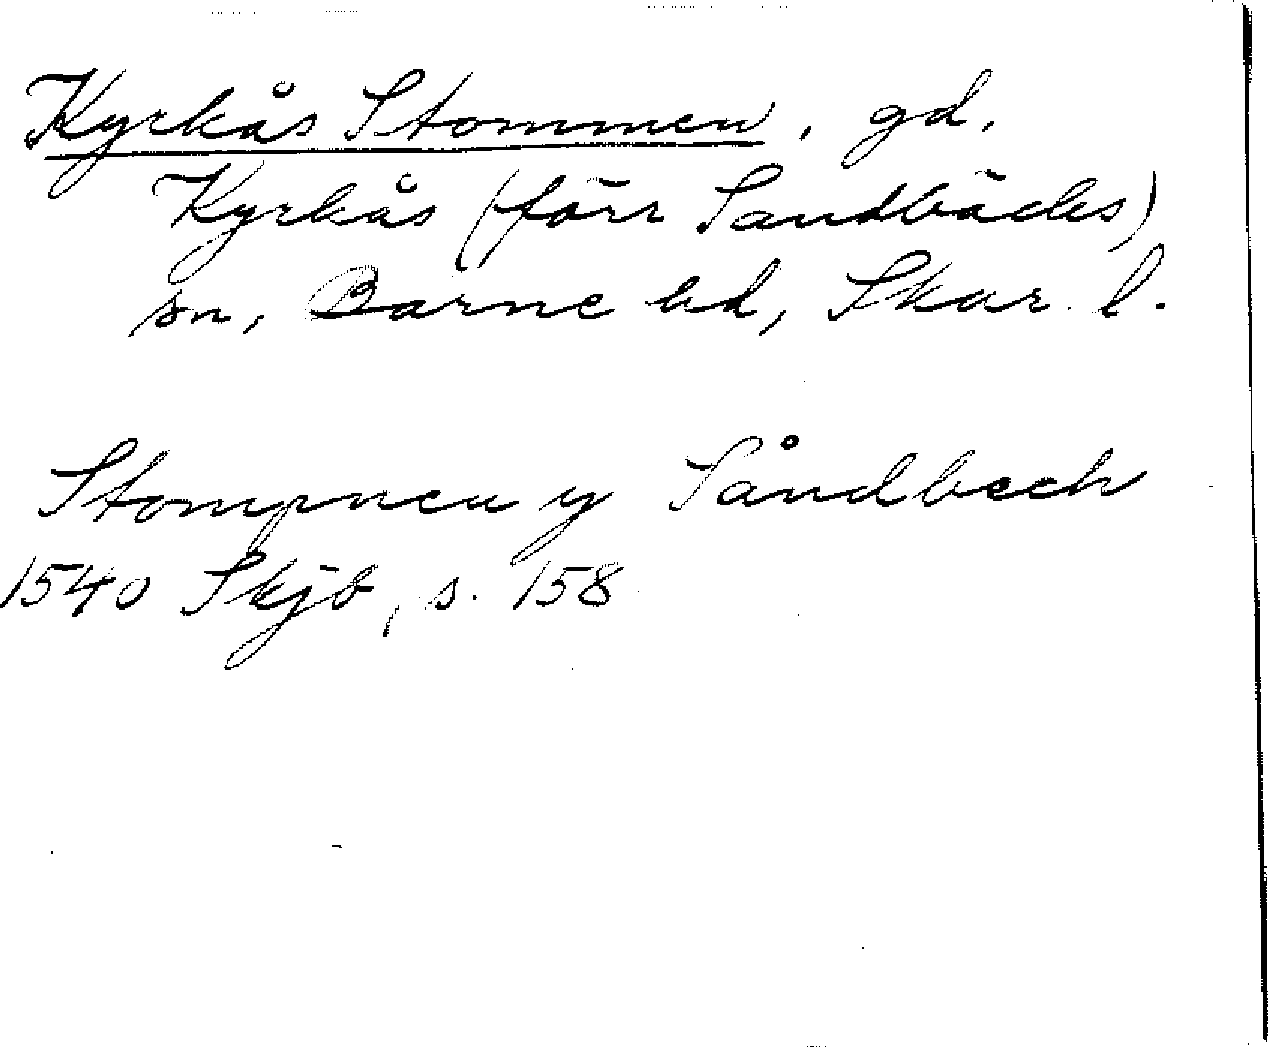 Kyrkås Stommen, gd,
Kyrkås (förr Sandbäcks)
sn, Barne hd, Skar. l.
Stompnen y Såndbeck
1540 Skjb, s. 158